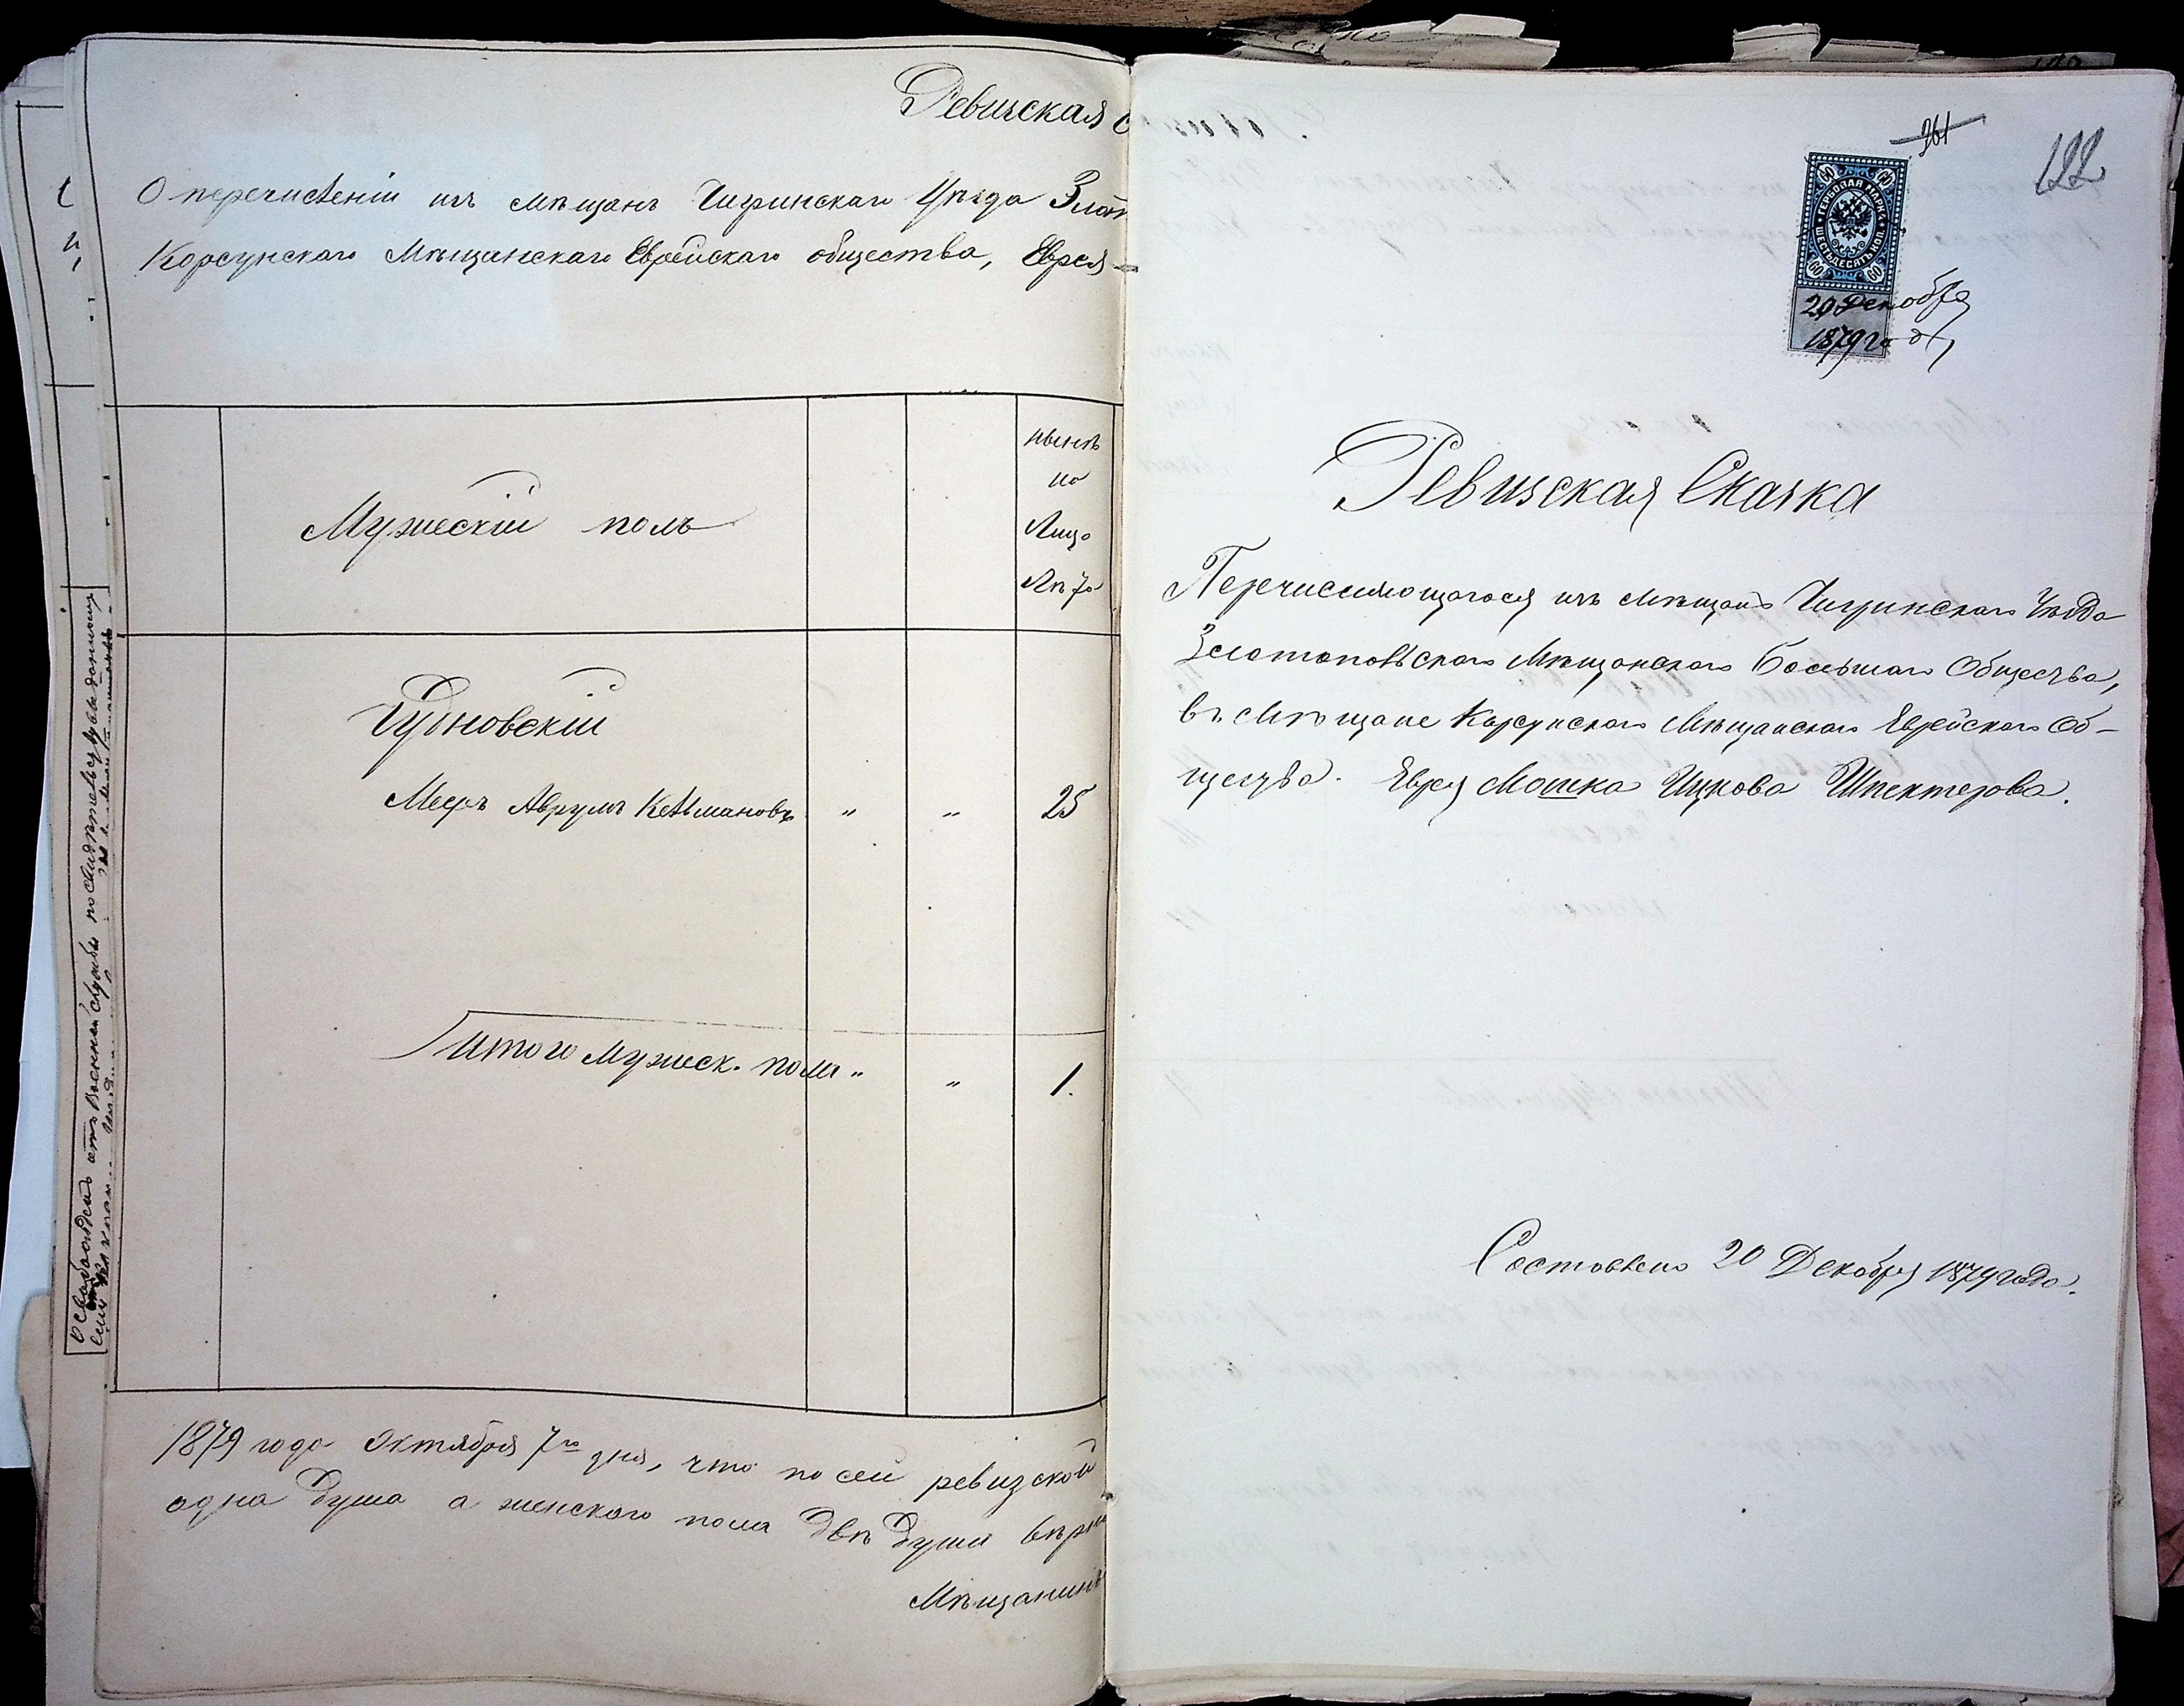 Ревизская с
О перечисленіи изъ мѣщанъ Чигринскаго Уѣзда Злат
Корсунскаго Мѣщанскаго Еврейскаго общества, Еврея
Мужескій полъ
нынѣ
на
Лицо
Лѣта
Чудновскій
Мееръ Аврумъ Кельмановъ " " 25
Итого мужеск. пола " " 1.
1879 года Октября 7го дня, что по сей ревизской
одна душа а женскаго пола двѣ души вѣрн
Мѣщанинъ
Освобожденъ отъ Военной службы по свидѣтельству
261
122
ГЕРБОВАЯ МАРКА
ШЕСТЬДЕСЯТЪ КОП.
60 60 60 60
20 Декабря
1879 года
Ревизская Сказка
Перечисляющагося изъ мѣщанъ Чигринскаго Уѣзда
Златопольскаго Мѣщанскаго Большаго Общества,
въ мѣщане Корсунскаго Мѣщанскаго Еврейскаго Об-
щества. Еврея Мошка Ицкова Шпектерова.
Составлена 20 Декабря 1879 года.